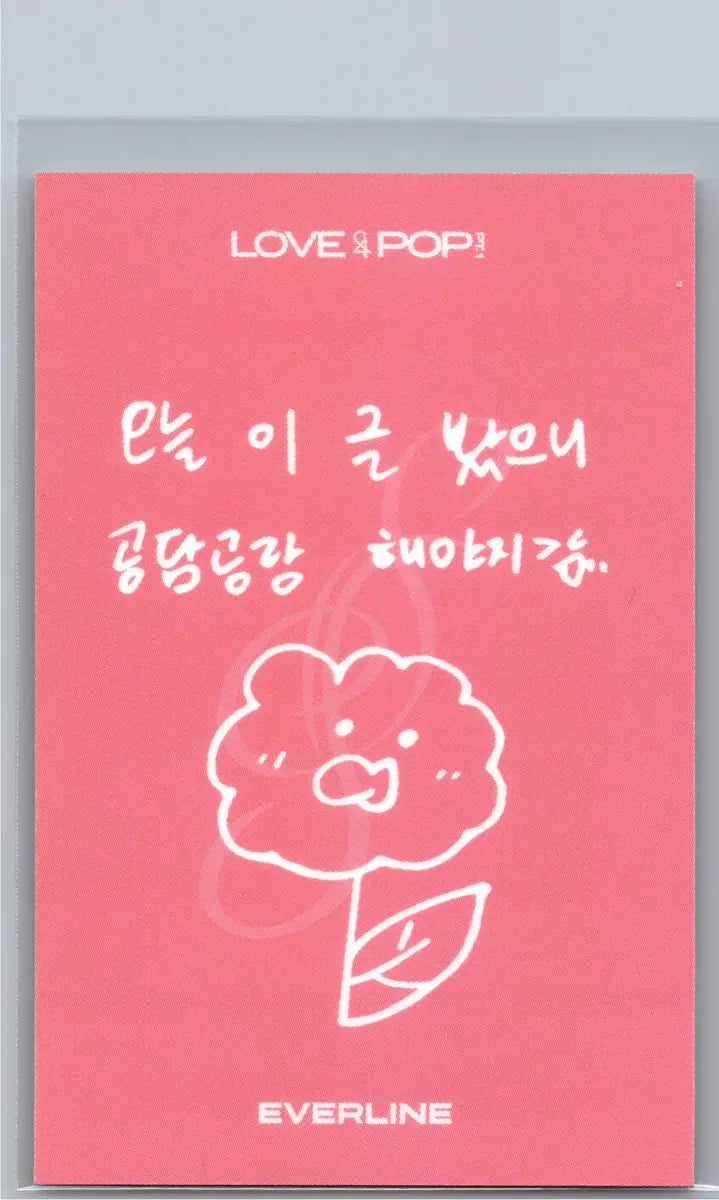 LOVE & POP PT.1
오늘 이 글 봤으니
공담공랑 해야지강.
EVERLINE